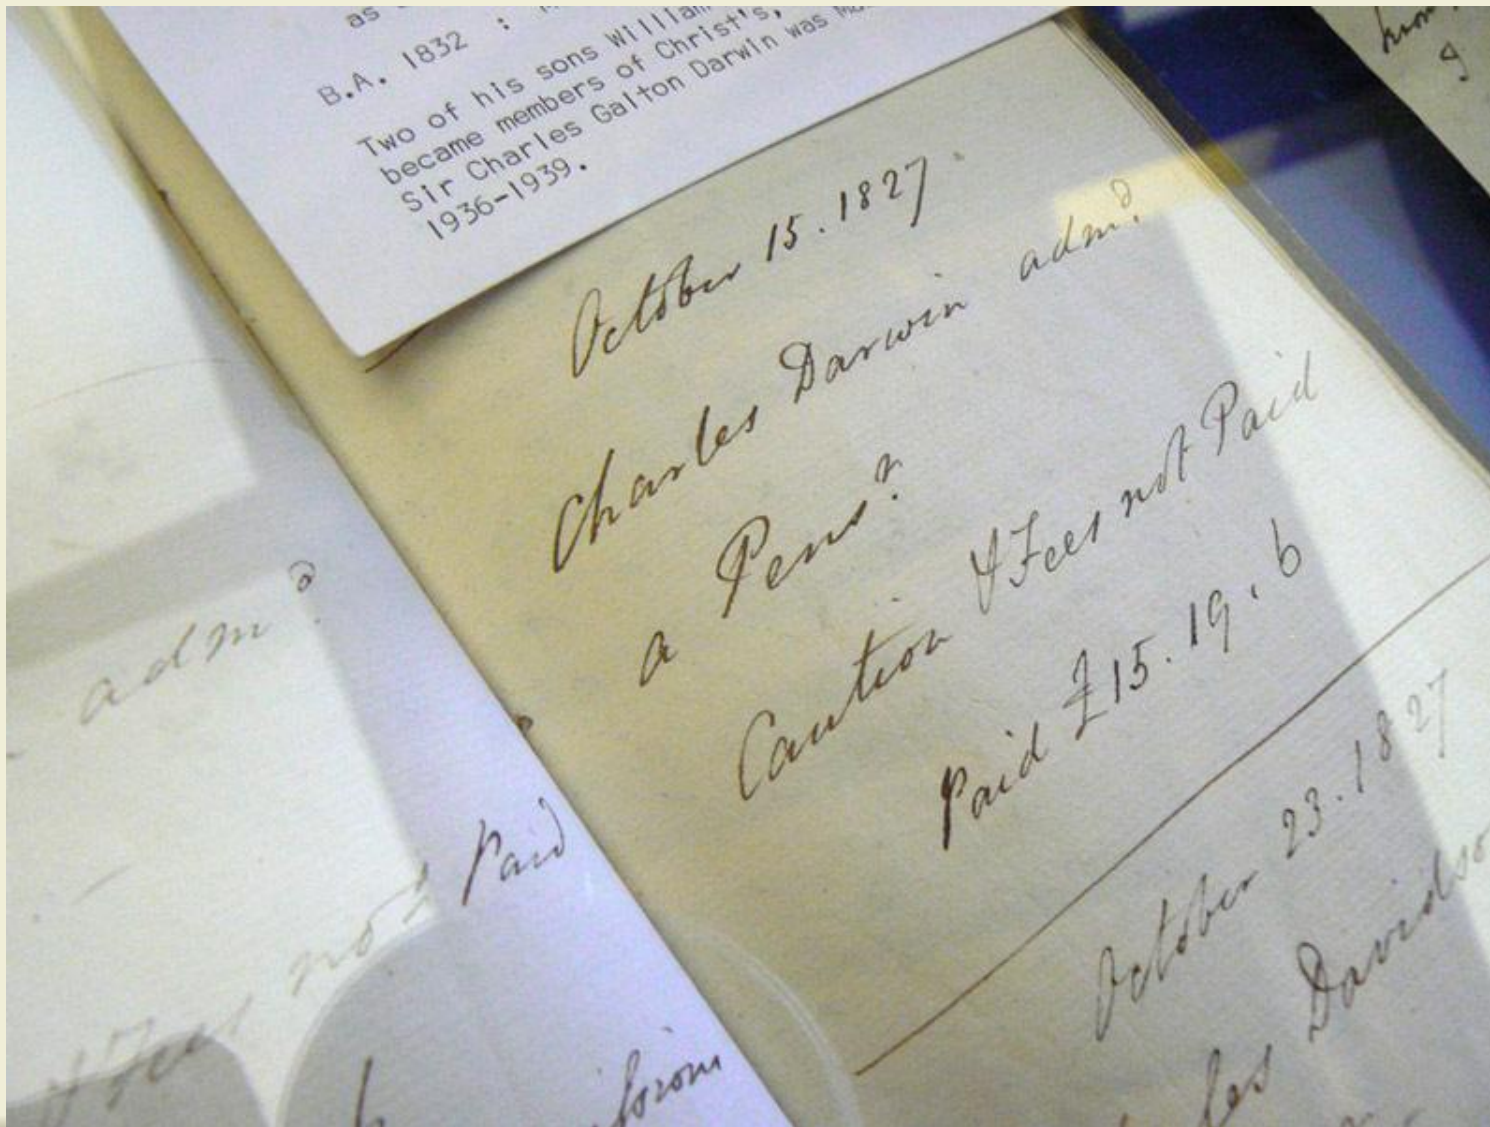 as
B.A. 1832 :
Two of his sons William
became members of Christ's,
Sir Charles Galton Darwin was
1936-1939.
October 15. 1827
Charles Darwin admd
a Pensr
Caution & Fees not Paid
Paid £15. 19. 6
October 23. 1827
Davidso
admd
& Fees not Paid